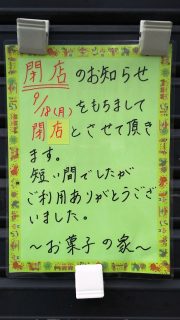 閉店のお知らせ
9/18(月)をもちまして
閉店とさせて頂き
ます。
短い間でしたが
ご利用ありがとうござ
いました。
～お菓子の家～